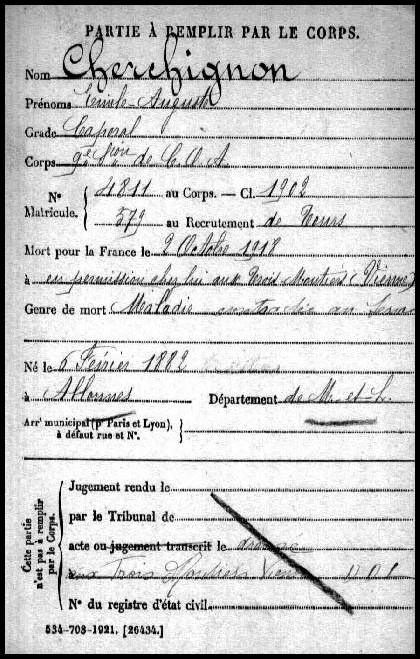 PARTIE À REMPLIR PAR LE CORPS.
Nom Cherchignon
Prénoms Emile Auguste
Grade Caporal
Corps 9e Son de C.O.A
N° Matricule. { 4811 au Corps. — Cl. 1902
579 au Recrutement de Tours
Mort pour la France le 2 Octobre 1918
à en permission chez lui aux Trois Moutiers (Vienne)
Genre de mort Maladie contractée au
Né le 5 Février 1882
à Allonnes Département de M.-et-L.
Arrt municipal (pr Paris et Lyon), à défaut rue et N°. {
Cette partie n'est pas à remplir par le Corps. {
Jugement rendu le
par le Tribunal de
acte ou jugement transcrit le
aux Trois Moutiers
N° du registre d'état civil
534-708-1921. [26434.]